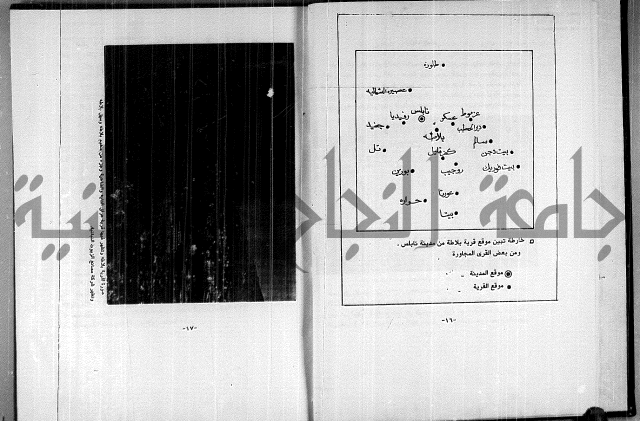 طلوزة
عصيرة الشمالية
نابلس
عزموط
رفيديا
عسكر
دير الحطب
جنيد
بلاطة
سالم
تل
كفر قليل
بيت دجن
بورين
روجيب
بيت فوريك
عورتا
حوارة
بيتا
خارطة تبين موقع قرية بلاطة من مدينة نابلس .
ومن بعض القرى المجاورة
موقع المدينة
موقع القرية
-١٦-
-١٧-
جامعة النجاح الوطنية